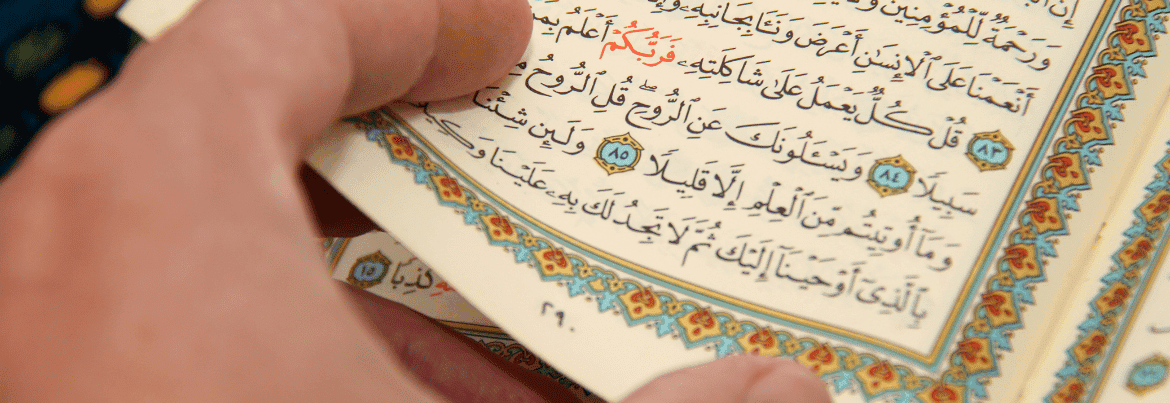 وَرَحْمَةٌ لِّلْمُؤْمِنِينَ
أَنْعَمْنَا عَلَى ٱلْإِنسَٰنِ أَعْرَضَ وَنَـَٔا بِجَانِبِهِۦ
٨٣ قُلْ كُلٌّ يَعْمَلُ عَلَىٰ شَاكِلَتِهِۦ فَرَبُّكُمْ أَعْلَمُ
سَبِيلًا ٨٤ وَيَسْـَٔلُونَكَ عَنِ ٱلرُّوحِ ۖ قُلِ ٱلرُّوحُ
وَمَآ أُوتِيتُم مِّنَ ٱلْعِلْمِ إِلَّا قَلِيلًا ٨٥ وَلَئِن شِئْنَا
بِٱلَّذِىٓ أَوْحَيْنَآ إِلَيْكَ ثُمَّ لَا تَجِدُ لَكَ بِهِۦ عَلَيْنَا
٢٩٠
كَذِبًا ١٥